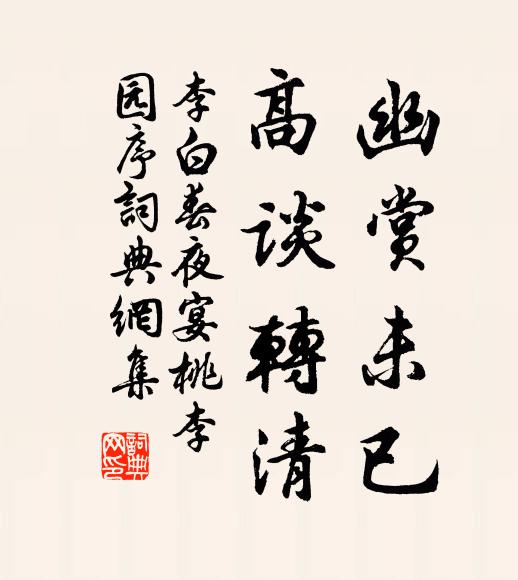 幽赏未已
高谈轉清
李白春夜宴桃李
园序詞典網集
詞典网印